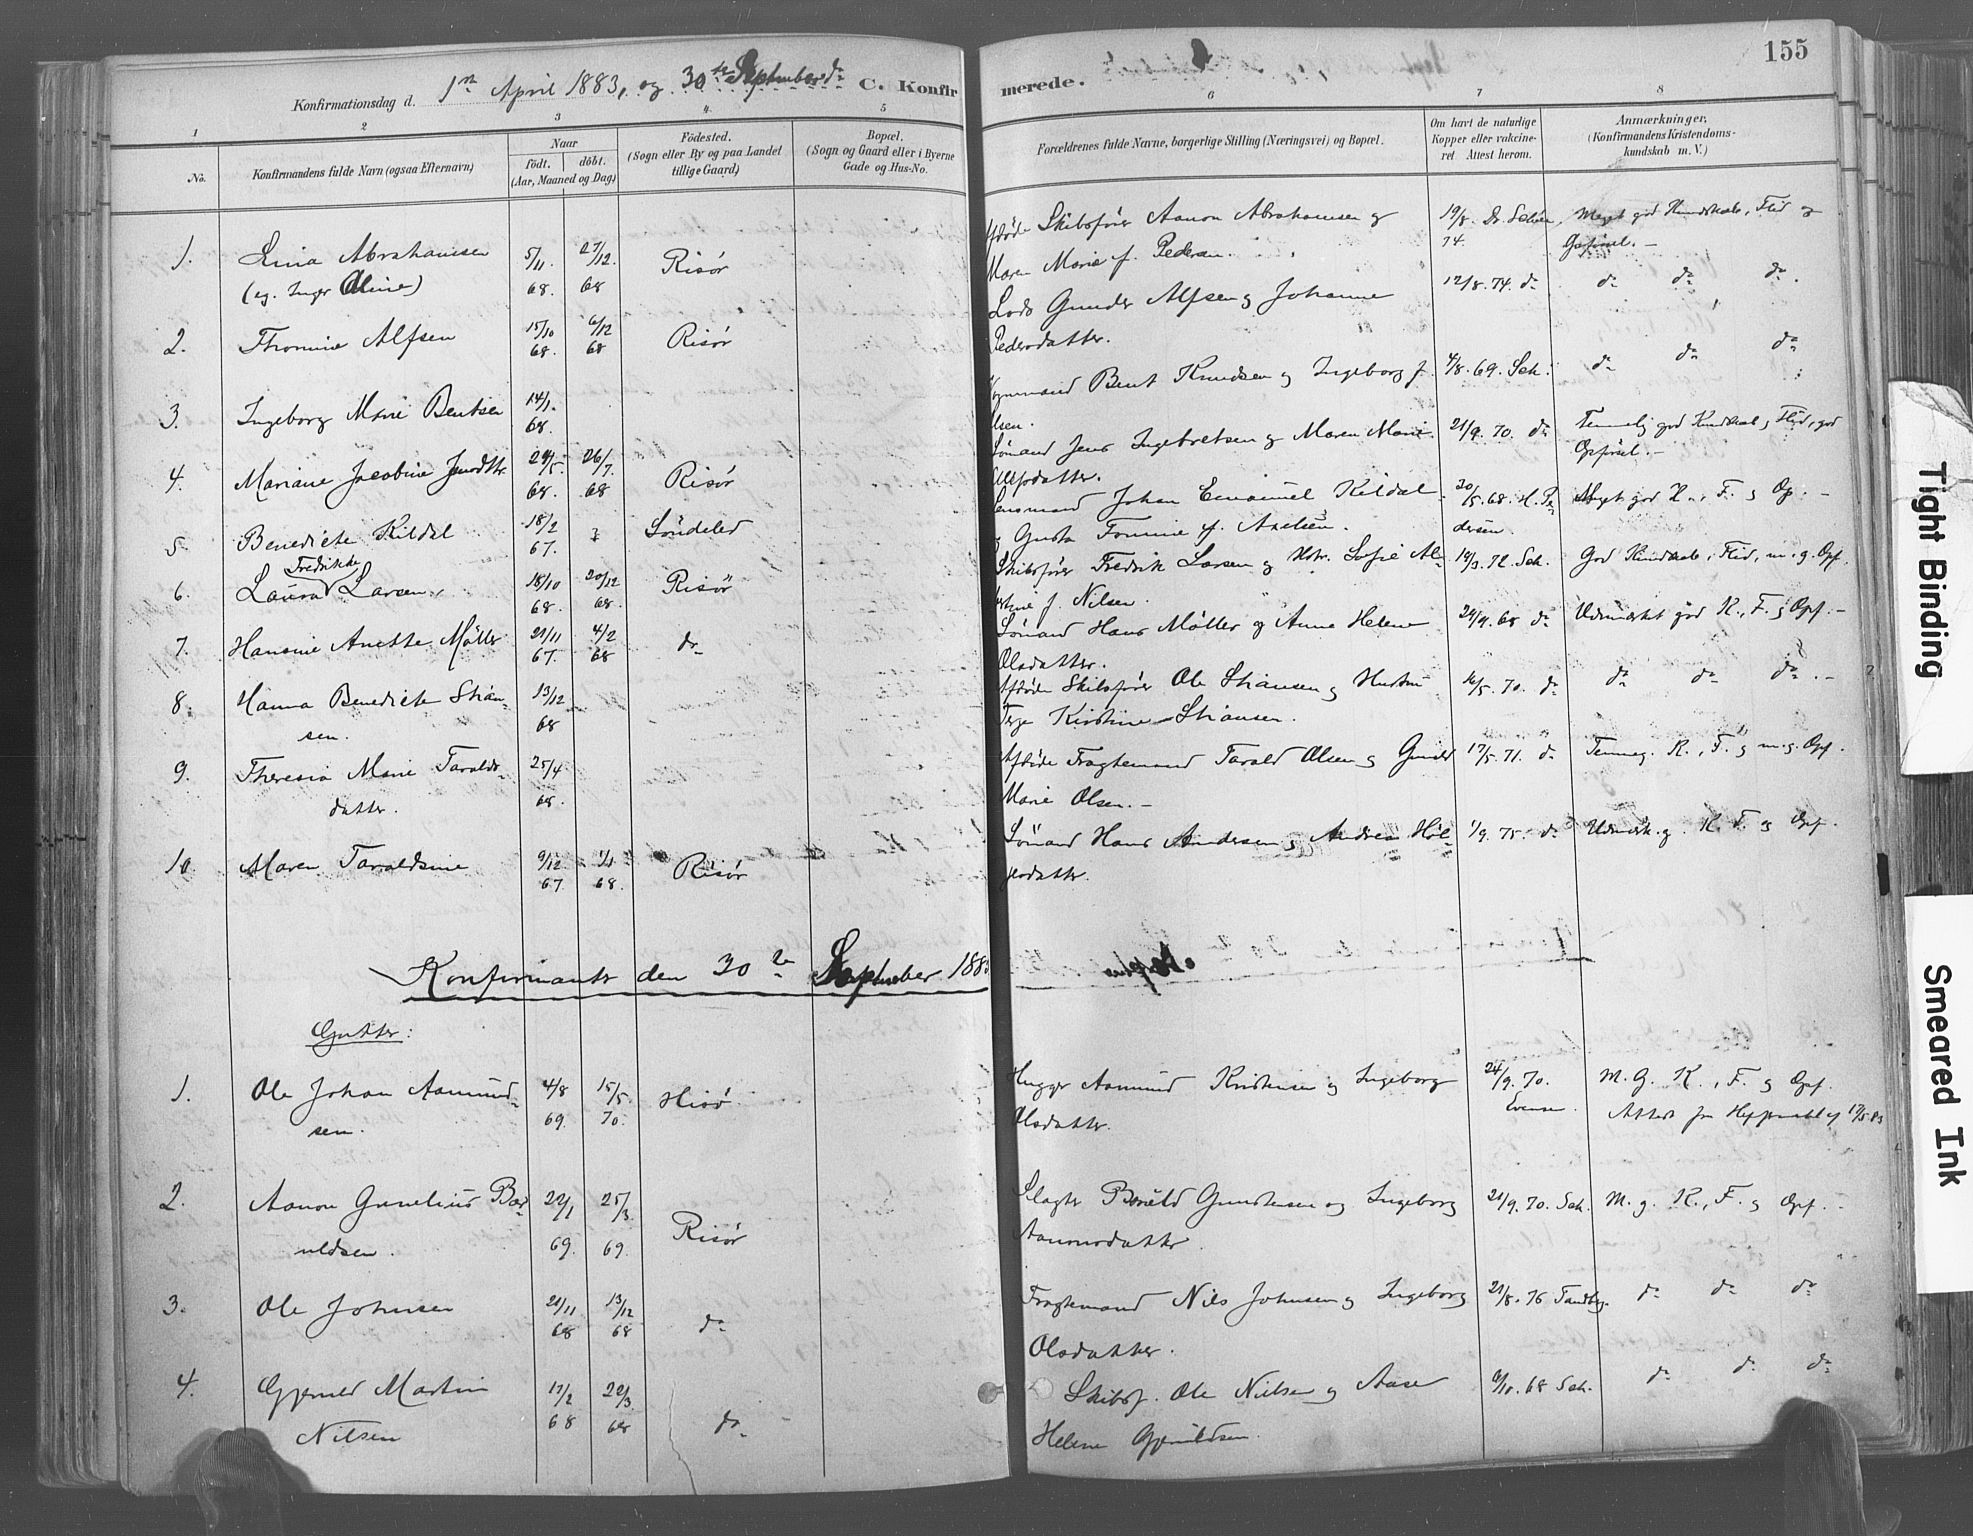 155
Konfirmationsdag d. 1ste April 1883, og 30te September da C. Konfirmerede.
1 2 3 4 5 6 7 8
No.
Konfirmandens fulde Navn (ogsaa Efternavn)
Naar
födt. döbt.
(Aar, Maaned og Dag)
Födested.
(Sogn eller By og paa Landet
tillige Gaard)
Bopæl.
(Sogn og Gaard eller i Byerne
Gade og Hus-No.
Forældrenes fulde Navne, borgerlige Stilling (Næringsvei) og Bopæl.
Om havt de naturlige
Kopper eller vakcine-
ret Attest herom.
Anmærkninger,
(Konfirmandens Kristendoms-
kundskab m. V.)
1. Lina Abrahamsen 5/11. 27/12. Risør Skibsfører Aanon Abrahamsen og 19/8. Dr. Meget god Kundskab, Flid og
(eg. Inger Oline) 68. 68 Maren Marie f. Pedersen. 74. Opførsel. –
2. Thomine Alfsen 15/10 6/12 Risør Lods Gunder Alfsen og Johanne 12/8. 74. do do do do.
68. 68 Pedersdatter.
3. Ingeborg Marie Bentsen 14/1. Bent Knudsen og Ingeborg f. 4/8. 69. Sch. do do do
68. Olsen.
4. Mariane Jacobine 24/5. 26/7. Risør Sømand Jens Ingebretsen og Maren Marie 21/9. 70. do Temmelig god Kundskab, Flid, god
68. 68 Opførsel. –
5. Benedicte Kildal 18/2 Søndeled Lensmand Johan Emanuel Kildal 20/5. 68. H. Pe- Meget god K., F. og Op. –
67. og Gusta Tomine f. Axelsen. dersen.
6. Laura Fredrikke Larsen. 18/10 20/12 Risør Skibsfører Fredrik Larsen og Hstr. Sofie Al- 14/3. 72. Sch. God Kundskab, Flid, m. g. Opf.
68. 68. f. Nilsen.
7. Hansine Anette Møller 21/11 4/2 do Sømand Hans Møller og Anne Helene 24/9. 68 do Udmærket god K., F. og Opf. –
67. 68 Olsdatter.
8. Hanna Benedicte Stian- 13/12 Afdøde Skibsfører Ole Stiansen og Hustru 16/5. 70. do do do do. –
sen. 68 Terje Kirstine Stiansen.
9. Theresia Marie Taralds- 25/4 Afdøde Fragtemand Tarald Olsen og Gunild 17/5. 71. do Temmeg. K., F. og m. g. Opf.
datter. 68. Marie Olsen. –
10. Maren Taraldsine 9/12. 1/1 Risør Sømand Hans Andersen og Andrea Hol- 1/9. 75. do Udmærk. g. K. F. og Opf.
67 68.
Konfirmanter den 30te September 1883
Gutter:
1. Ole Johan Aamund- 4/8 15/5. Hisø Hugger Aamund Kristensen og Ingeborg 24/9. 70. M. G. K., F. og Opf.
sen. 69. 70. Olsdatter. Evensen. Attest fra 17/5 83
2. Aanon Gunelius Bær- 22/1 25/3. Risør Slagter Gundersen og Ingeborg 21/9. 70. Sch. M. g. K., F. og Opf. –
uldsen. 69. 69. Aanonsdatter.
3. Ole Johnsen 21/11 13/12 do Fragtemand Nils Johnsen og Ingeborg 21/8. 76 Tandberg. do do do
68 68 Olsdatter.
4. Gjerulf Martin 17/2 22/3. do Skibsf. Ole Nielsen og Aase 9/10. 68 Sch. do do do
Nilsen 68 68 Helene Gjeruldsen.
Tight Binding
Smeared Ink